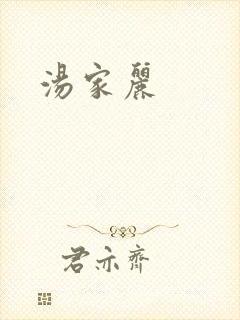 湯家麗
君亦齊